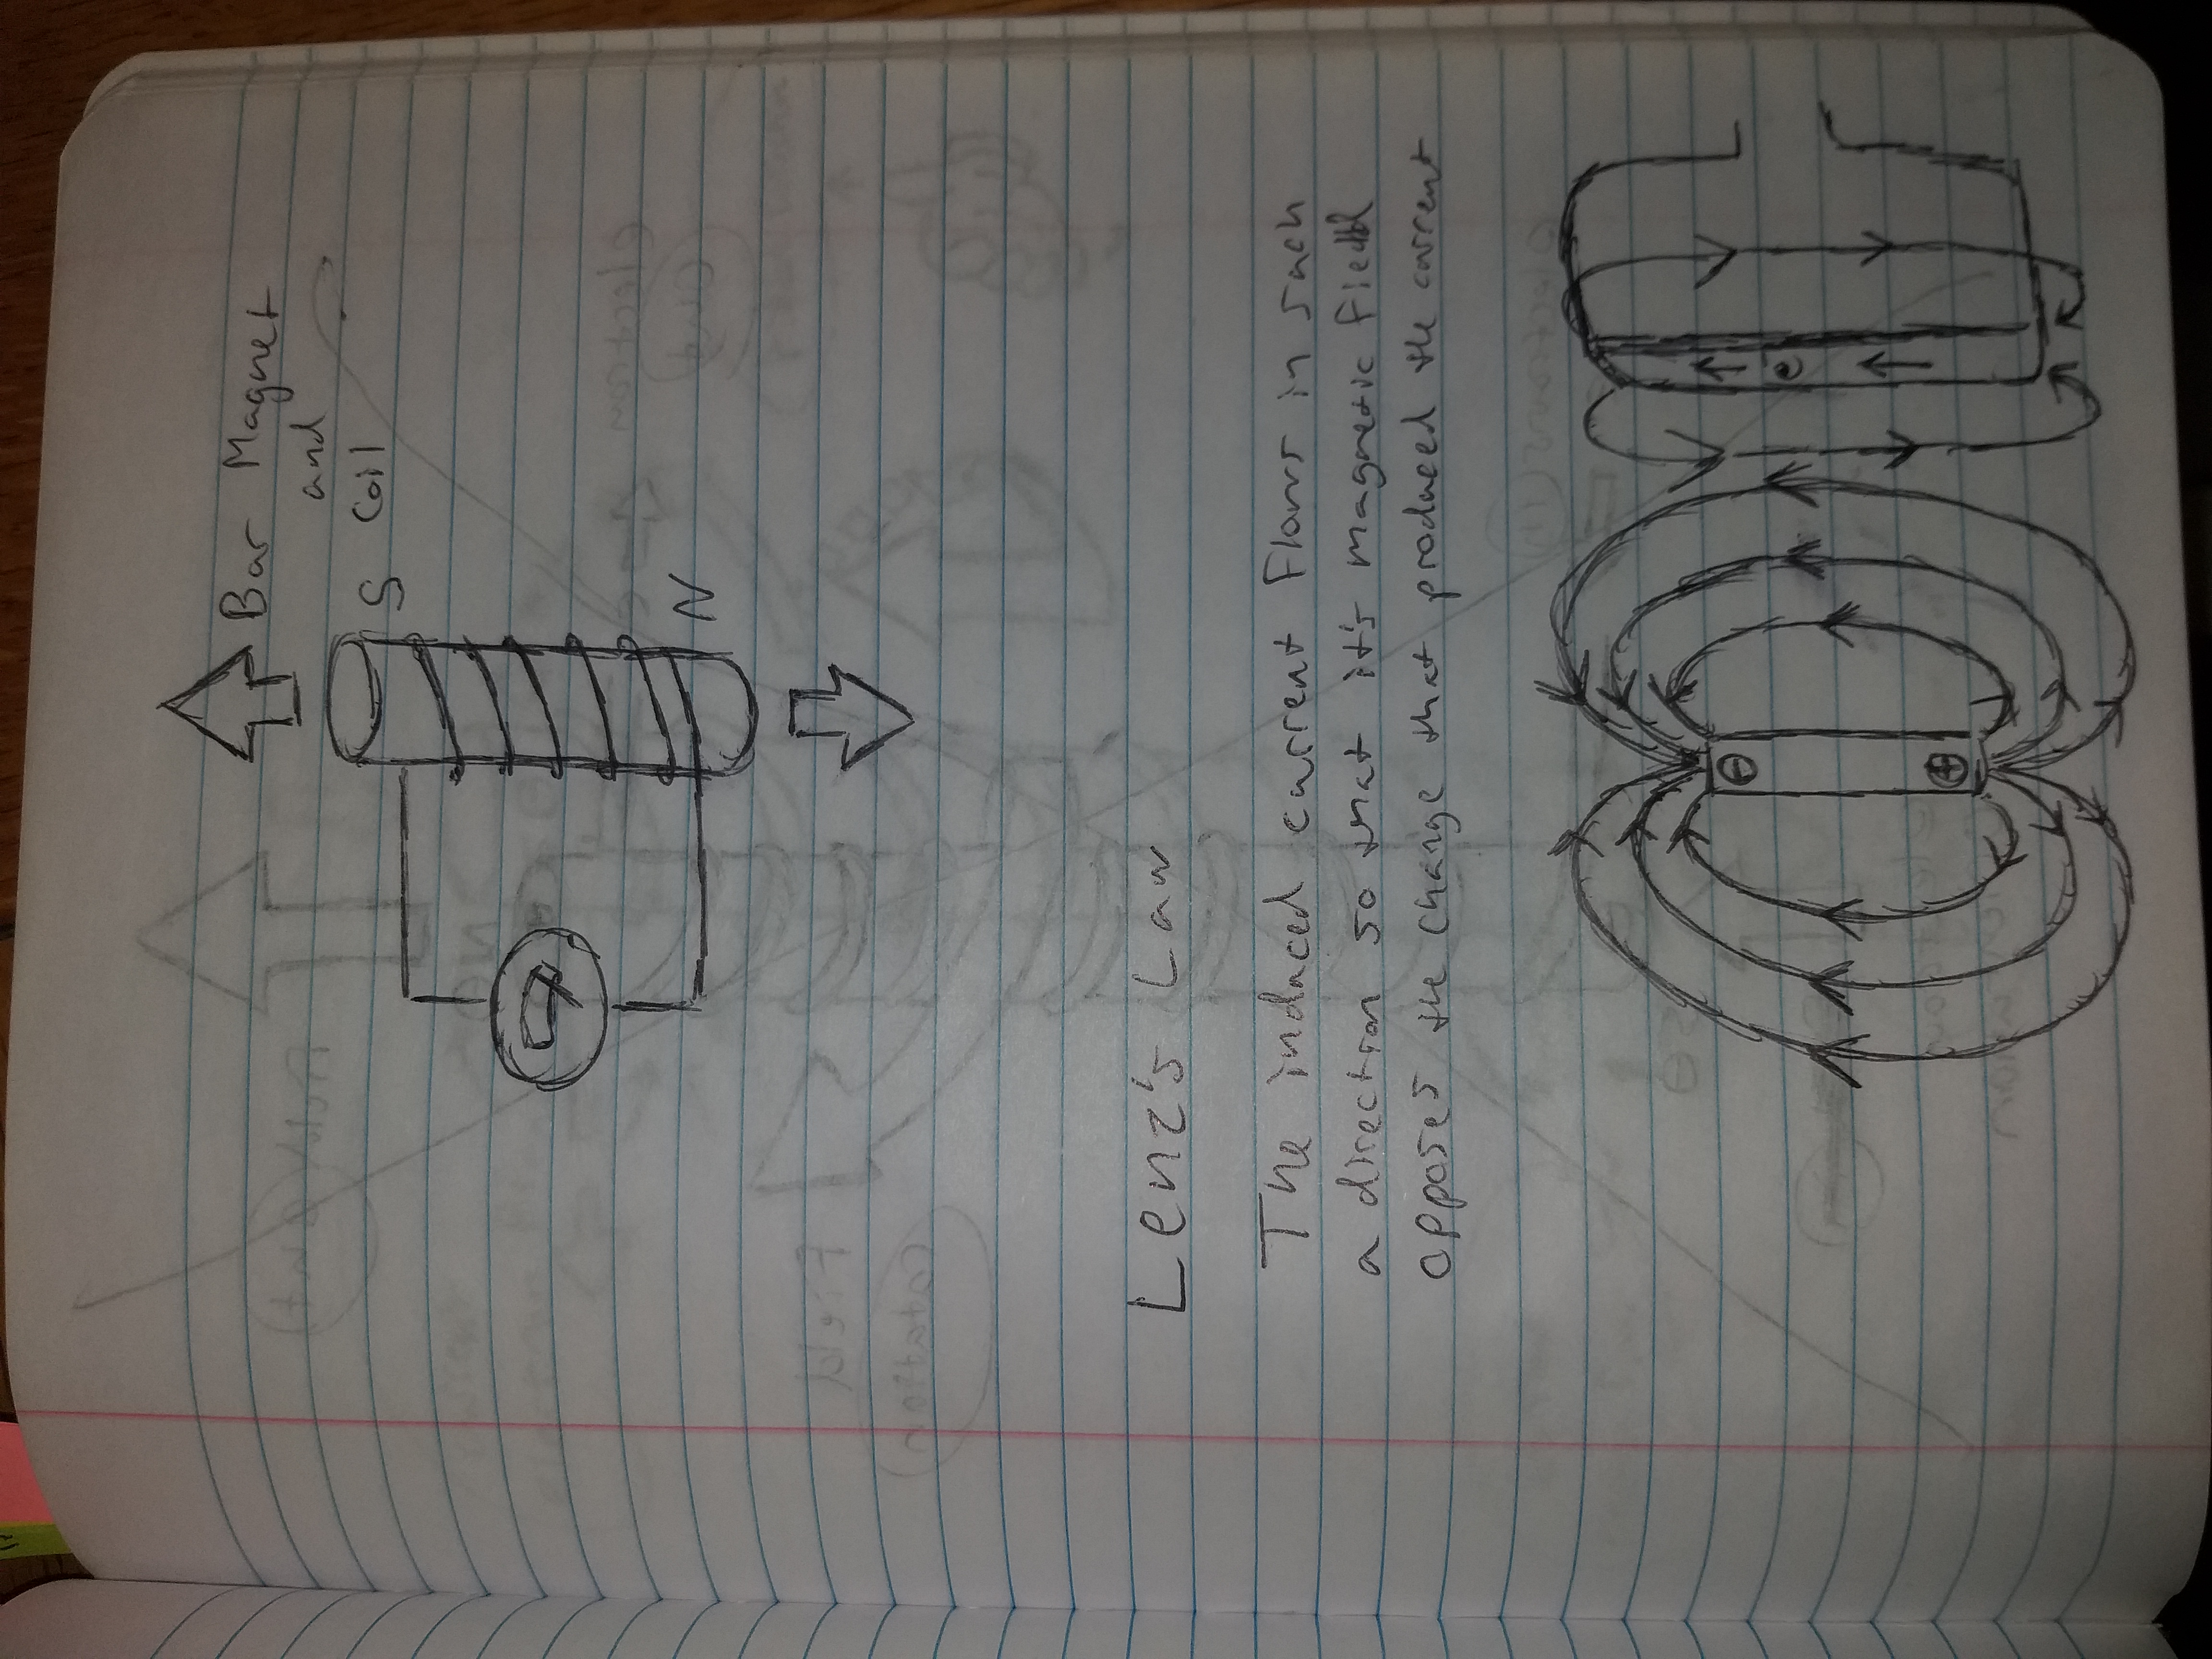 Bar Magnet
and
Coil
S
N
Lenz's Law
The induced current flows in such
a direction so that it's magnetic field
opposes the change that produced the current
-
e
+